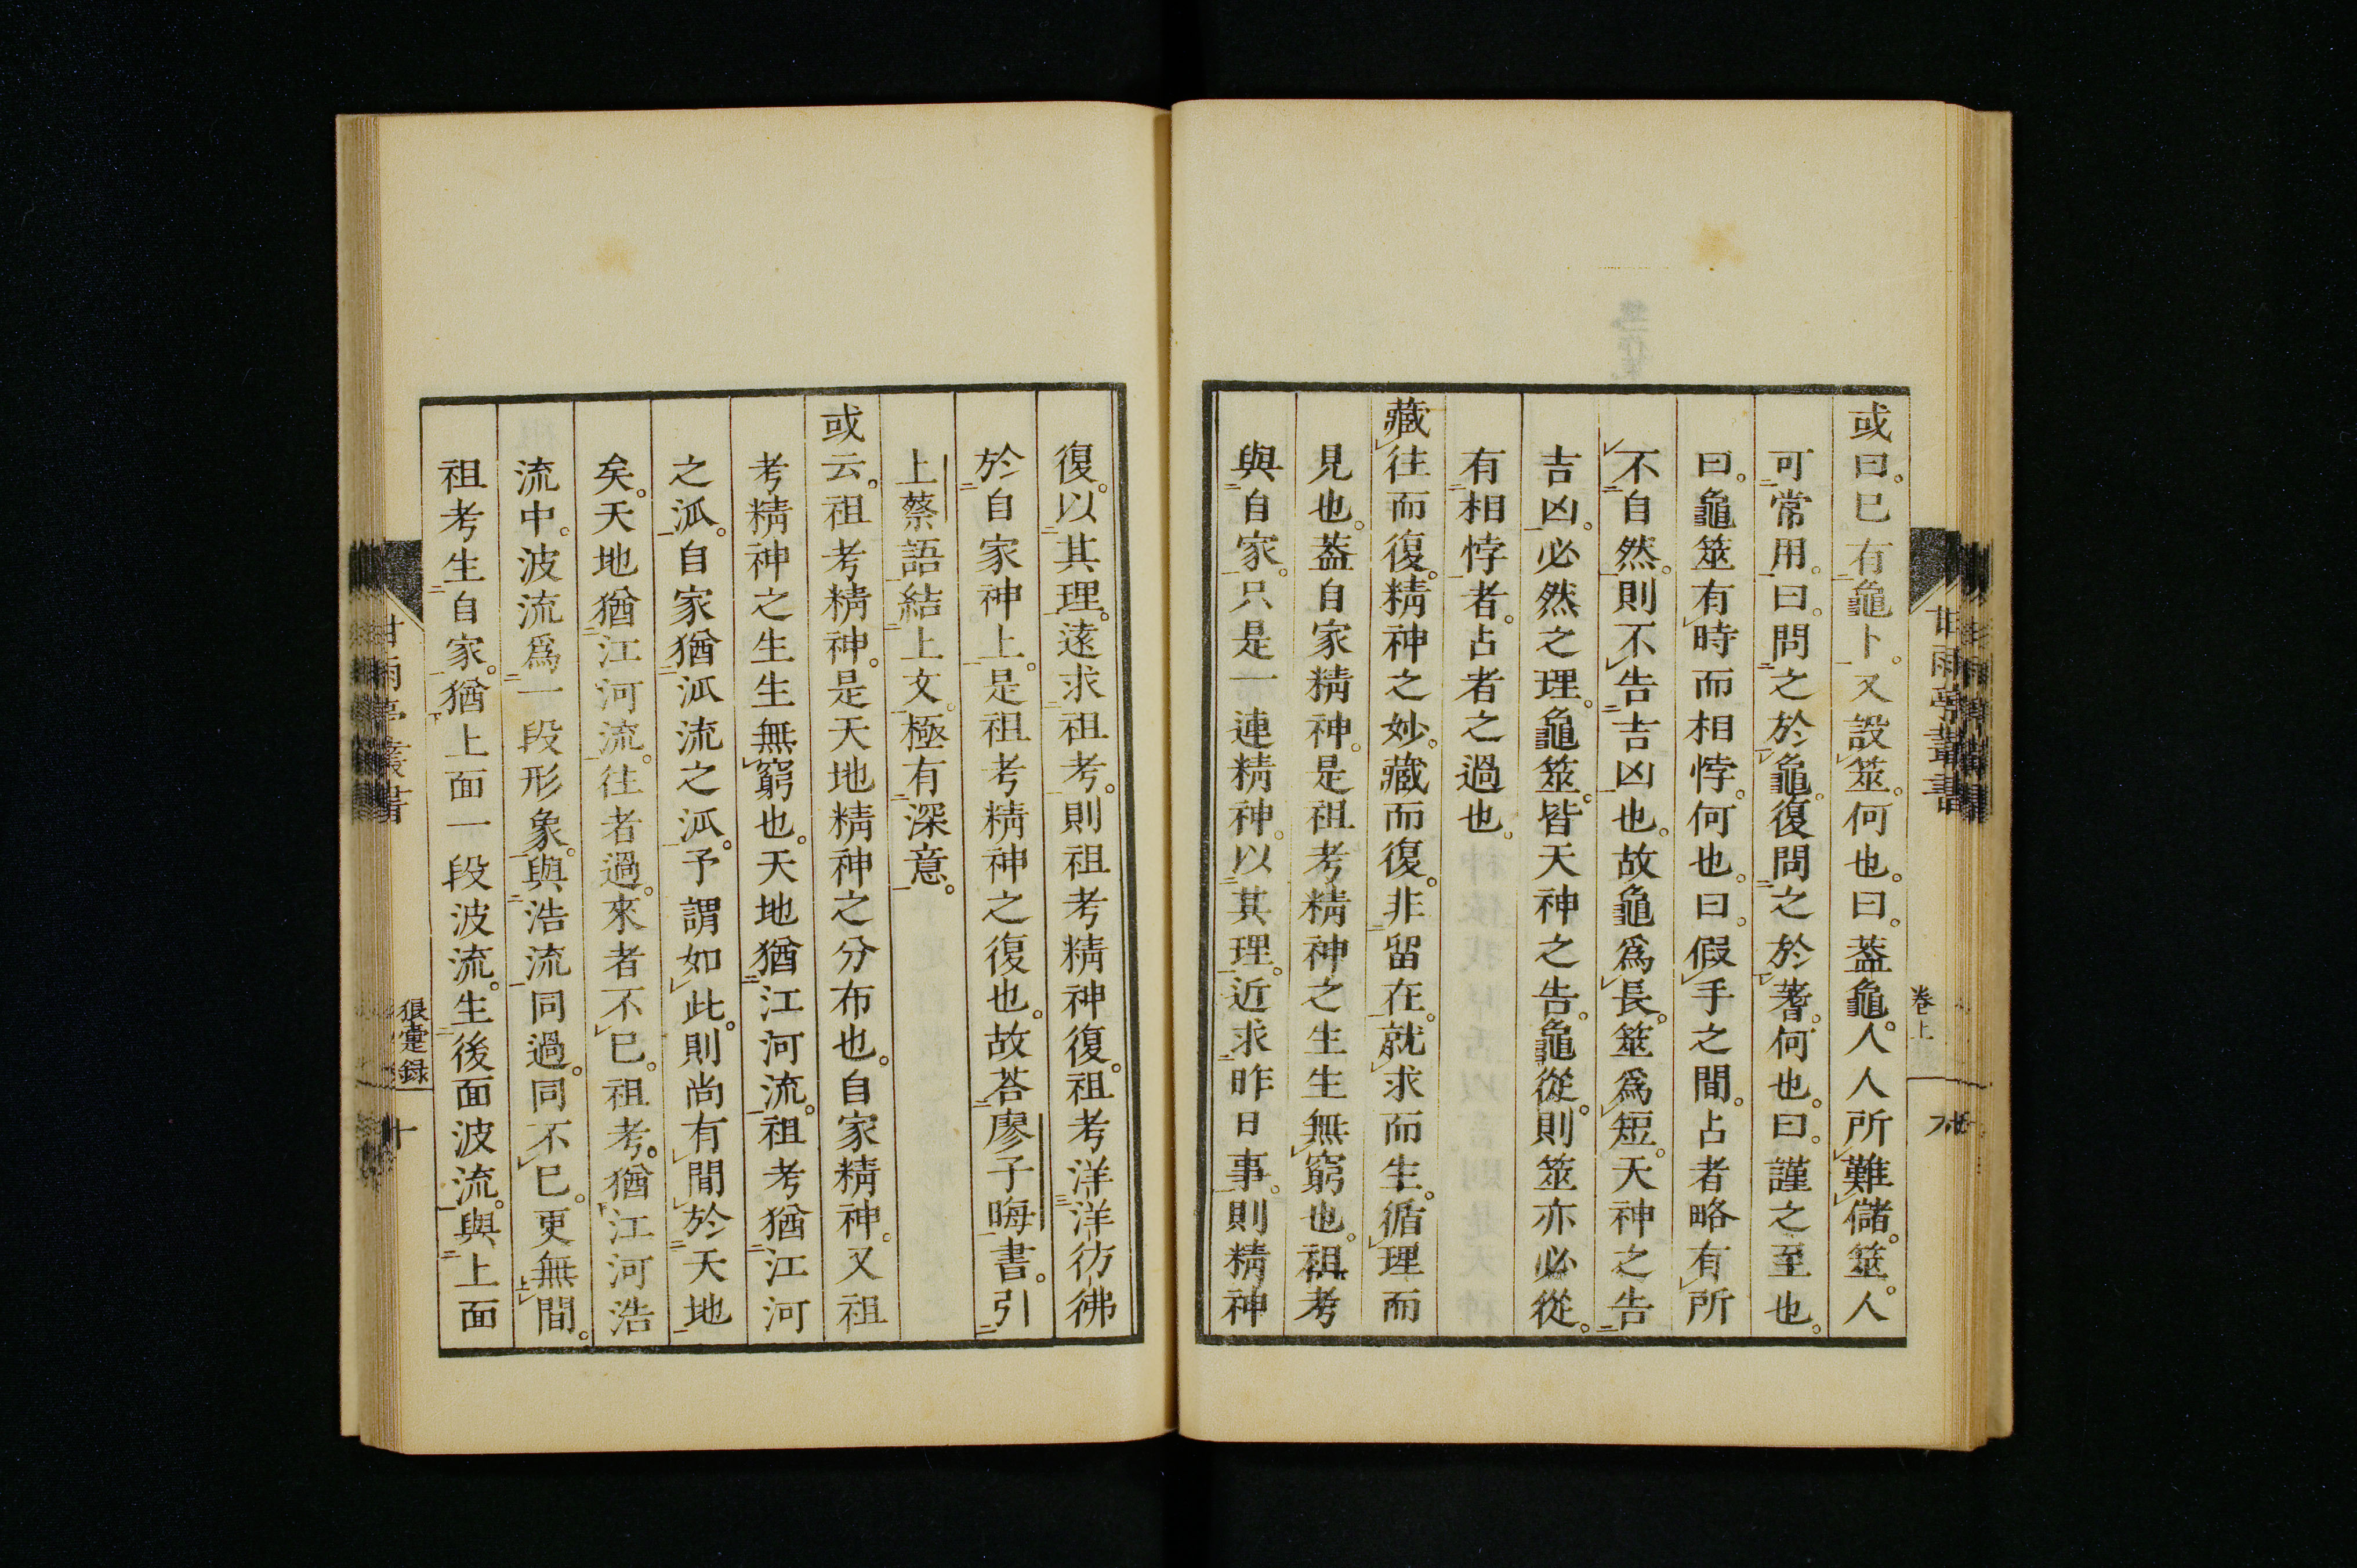 或曰。已有龜卜。又設筮。何也。曰。蓋龜。人人所難儲。筮。人
可常用。曰。問之於龜。復問之於蓍。何也。曰。謹之至也。
曰。龜筮有時而相悖。何也。曰。假手之間。占者略有所
不自然。則不告吉凶也。故龜爲長。筮爲短。天神之告
吉凶。必然之理。龜筮。皆天神之告。龜從。則筮亦必從。
有相悖者。占者之過也。
藏往而復。精神之妙。藏而復。非留在。就求而生。循理而
見也。蓋自家精神。是祖考精神之生生無窮也。祖考
與自家。只是一連精神。以其理。近求昨日事。則精神
卷上
甘雨亭叢書
復。以其理。遠求祖考。則祖考精神復。祖考洋洋彷彿
於自家神上。是祖考精神之復也。故荅廖子晦書。引
上蔡語結上文。極有深意。
或云。祖考精神。是天地精神之分布也。自家精神。又祖
考精神之生生無窮也。天地猶江河流。祖考猶江河
之泒。自家猶泒流之泒。予謂如此。則尚有間於天地
矣。天地猶江河流。往者過。來者不已。祖考。猶江河浩
流中。波流爲一段形象。與浩流同過。同不已。更無間。
祖考生自家。猶上面一段波流。生後面波流。與上面
甘雨亭叢書
狼疐録
十